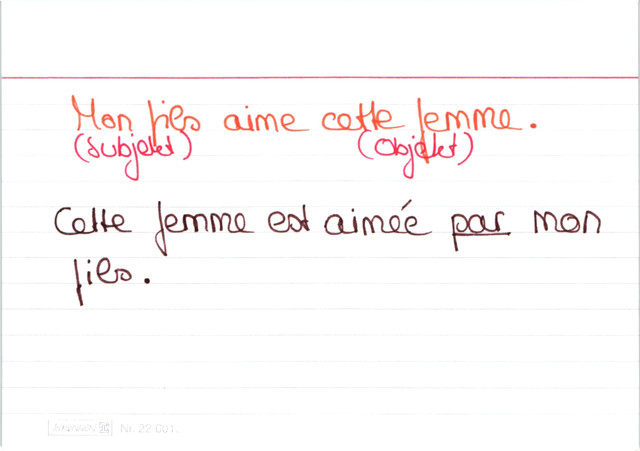 Mon fils aime cette femme.
(Subjekt) (Objekt)
Cette femme est aimée par mon
fils.
Nr. 22 601.